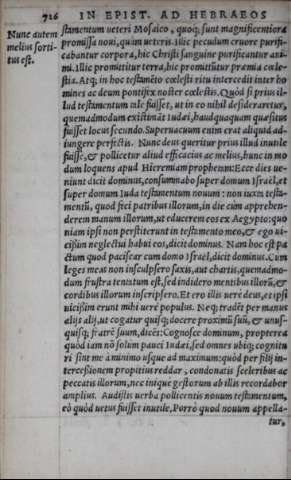 726 IN EPIST. AD HEBRAEOS
Nunc autem
melius sorti-
tus est.
stamentum ueteri Mosaico, quoq; sunt magnificentiora
promissa noui, quàm ueteris. Illic peculum cruore purifi-
cabantur corpora, hic Christi sanguine purificantur ani-
mi. Illic promittitur terra, hic promittitur præmia cœle-
stia. Atq; in hoc testamẽto cœlesti ritu intercedit inter ho
mines ac deum pontifex noster cœlestis. Quòd si prius il-
lud testamentum tale fuisset, ut in eo nihil desideraretur,
quemadmodum existimãt Iudæi, haudquaquam quæsitus
fuisset locus secundo. Superuacuum enim erat aliquid ad-
iungere perfectis. Nunc deus queritur prius illud inutile
fuisse, & pollicetur aliud efficacius ac melius, hunc in mo
dum loquens apud Hieremiam prophetam: Ecce dies ue-
niunt dicit dominus, consummabo super domum Israël, et
super domum Iuda testamentum nouum: non iuxta testa-
mentũ, quod feci patribus illorum, in die cum apprehen-
derem manum illorum, ut educerem eos ex Aegypto: quo
niam ipsi non perstiterunt in testamento meo, & ego ui-
cißim neglectui habui eos, dicit dominus. Nam hoc est pa
ctum quod paciscar cum domo Israël, dicit dominus. Cum
leges meas non insculpsero saxis, aut chartis, quemadmo-
dum frustra tentatum est, sed indidero mentibus illorũ, &
cordibus illorum inscripsero. Et ero illis uerè deus, et ipsi
uicißim erunt mihi uerè populus. Neq; tradẽt per manus
alijs alij, ut cogatur quisq; docere proximũ suũ, & unus-
quisq; fratrẽ suum, dicẽs: Cognosce dominum, propterea
quòd iam nõ solum pauci Iudæi, sed omnes ubiq; cognitu
ri sint me à minimo usque ad maximum: quòd per filij in-
tercessionem propitius reddar, condonatis sceleribus ac
peccatis illorum, nec iniquè gestorum ab illis recordabor
amplius. Audistis uerba pollicentis nouum testamentum,
eò quòd uetus fuisset inutile, Porrò quod nouum appella-
tur,